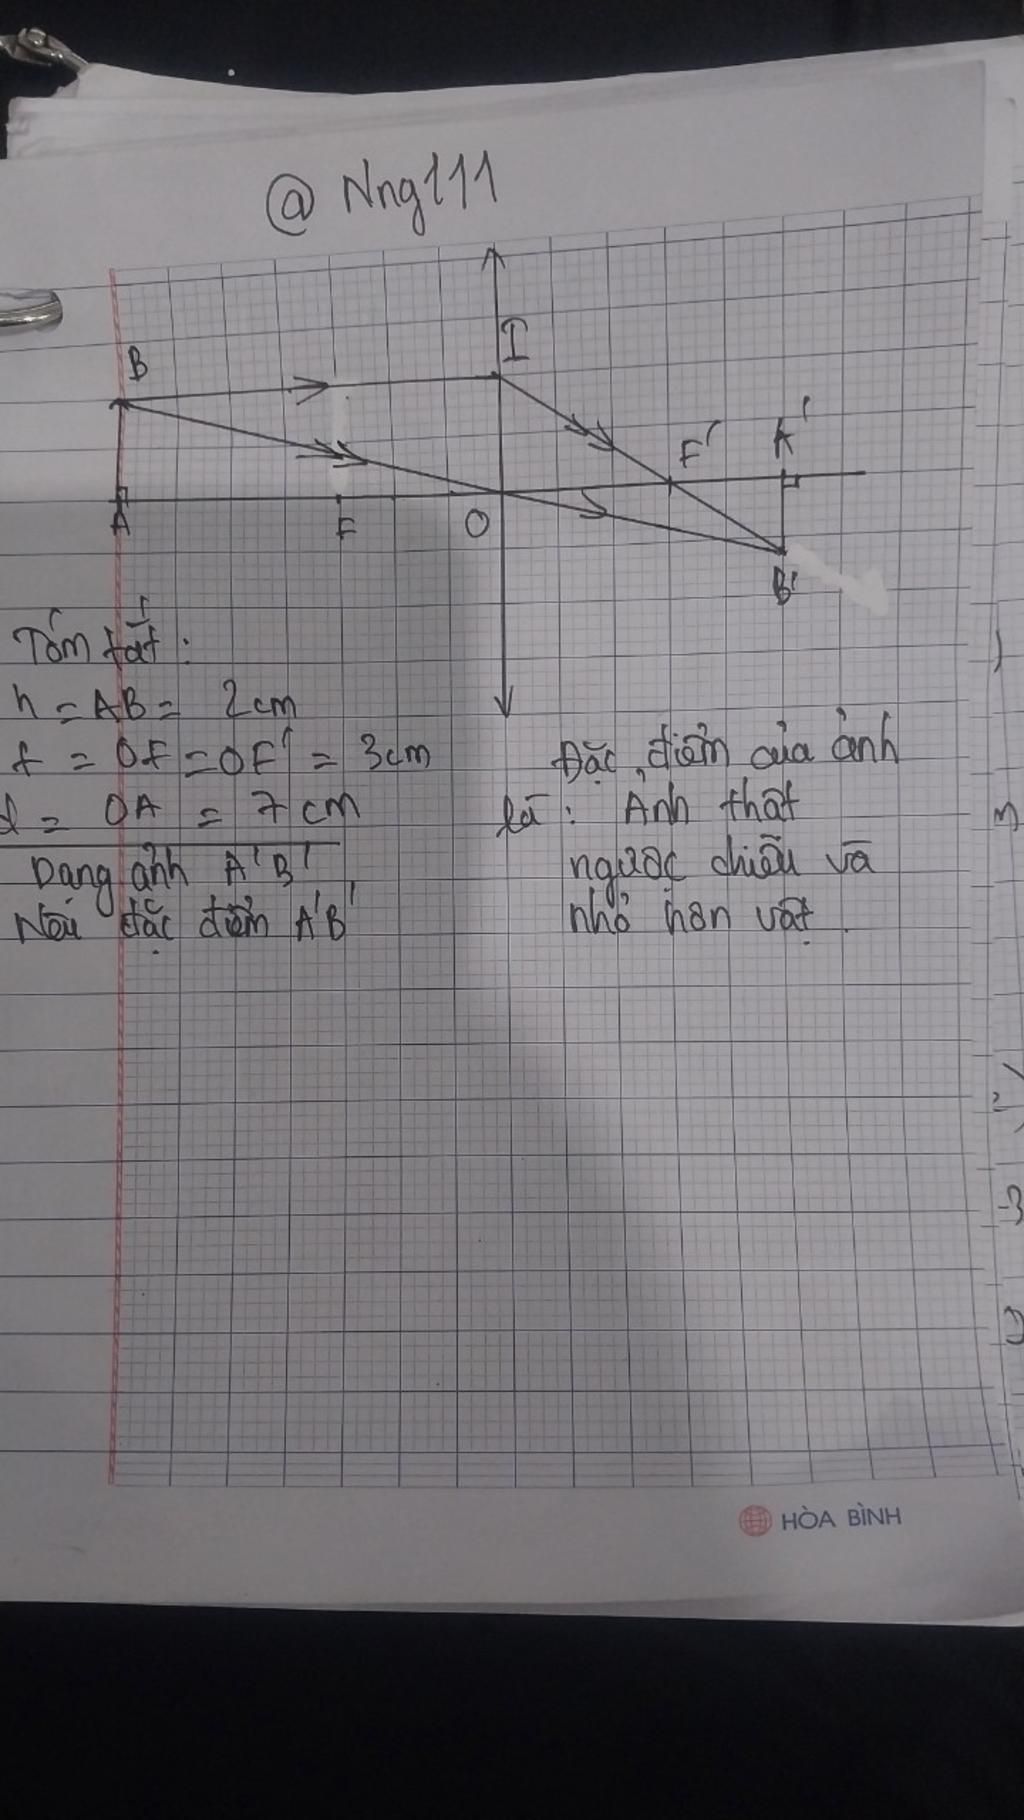 @ Nng111
B
I
F'
A'
A
F
O
B'
Tóm tắt:
h = AB = 2cm
f = OF = OF' = 3cm
d = OA = 7cm
Dựng ảnh A'B'
Nêu đặc điểm A'B'
Đặc điểm của ảnh
là: Ảnh thật
ngược chiều và
nhỏ hơn vật.
HÒA BÌNH